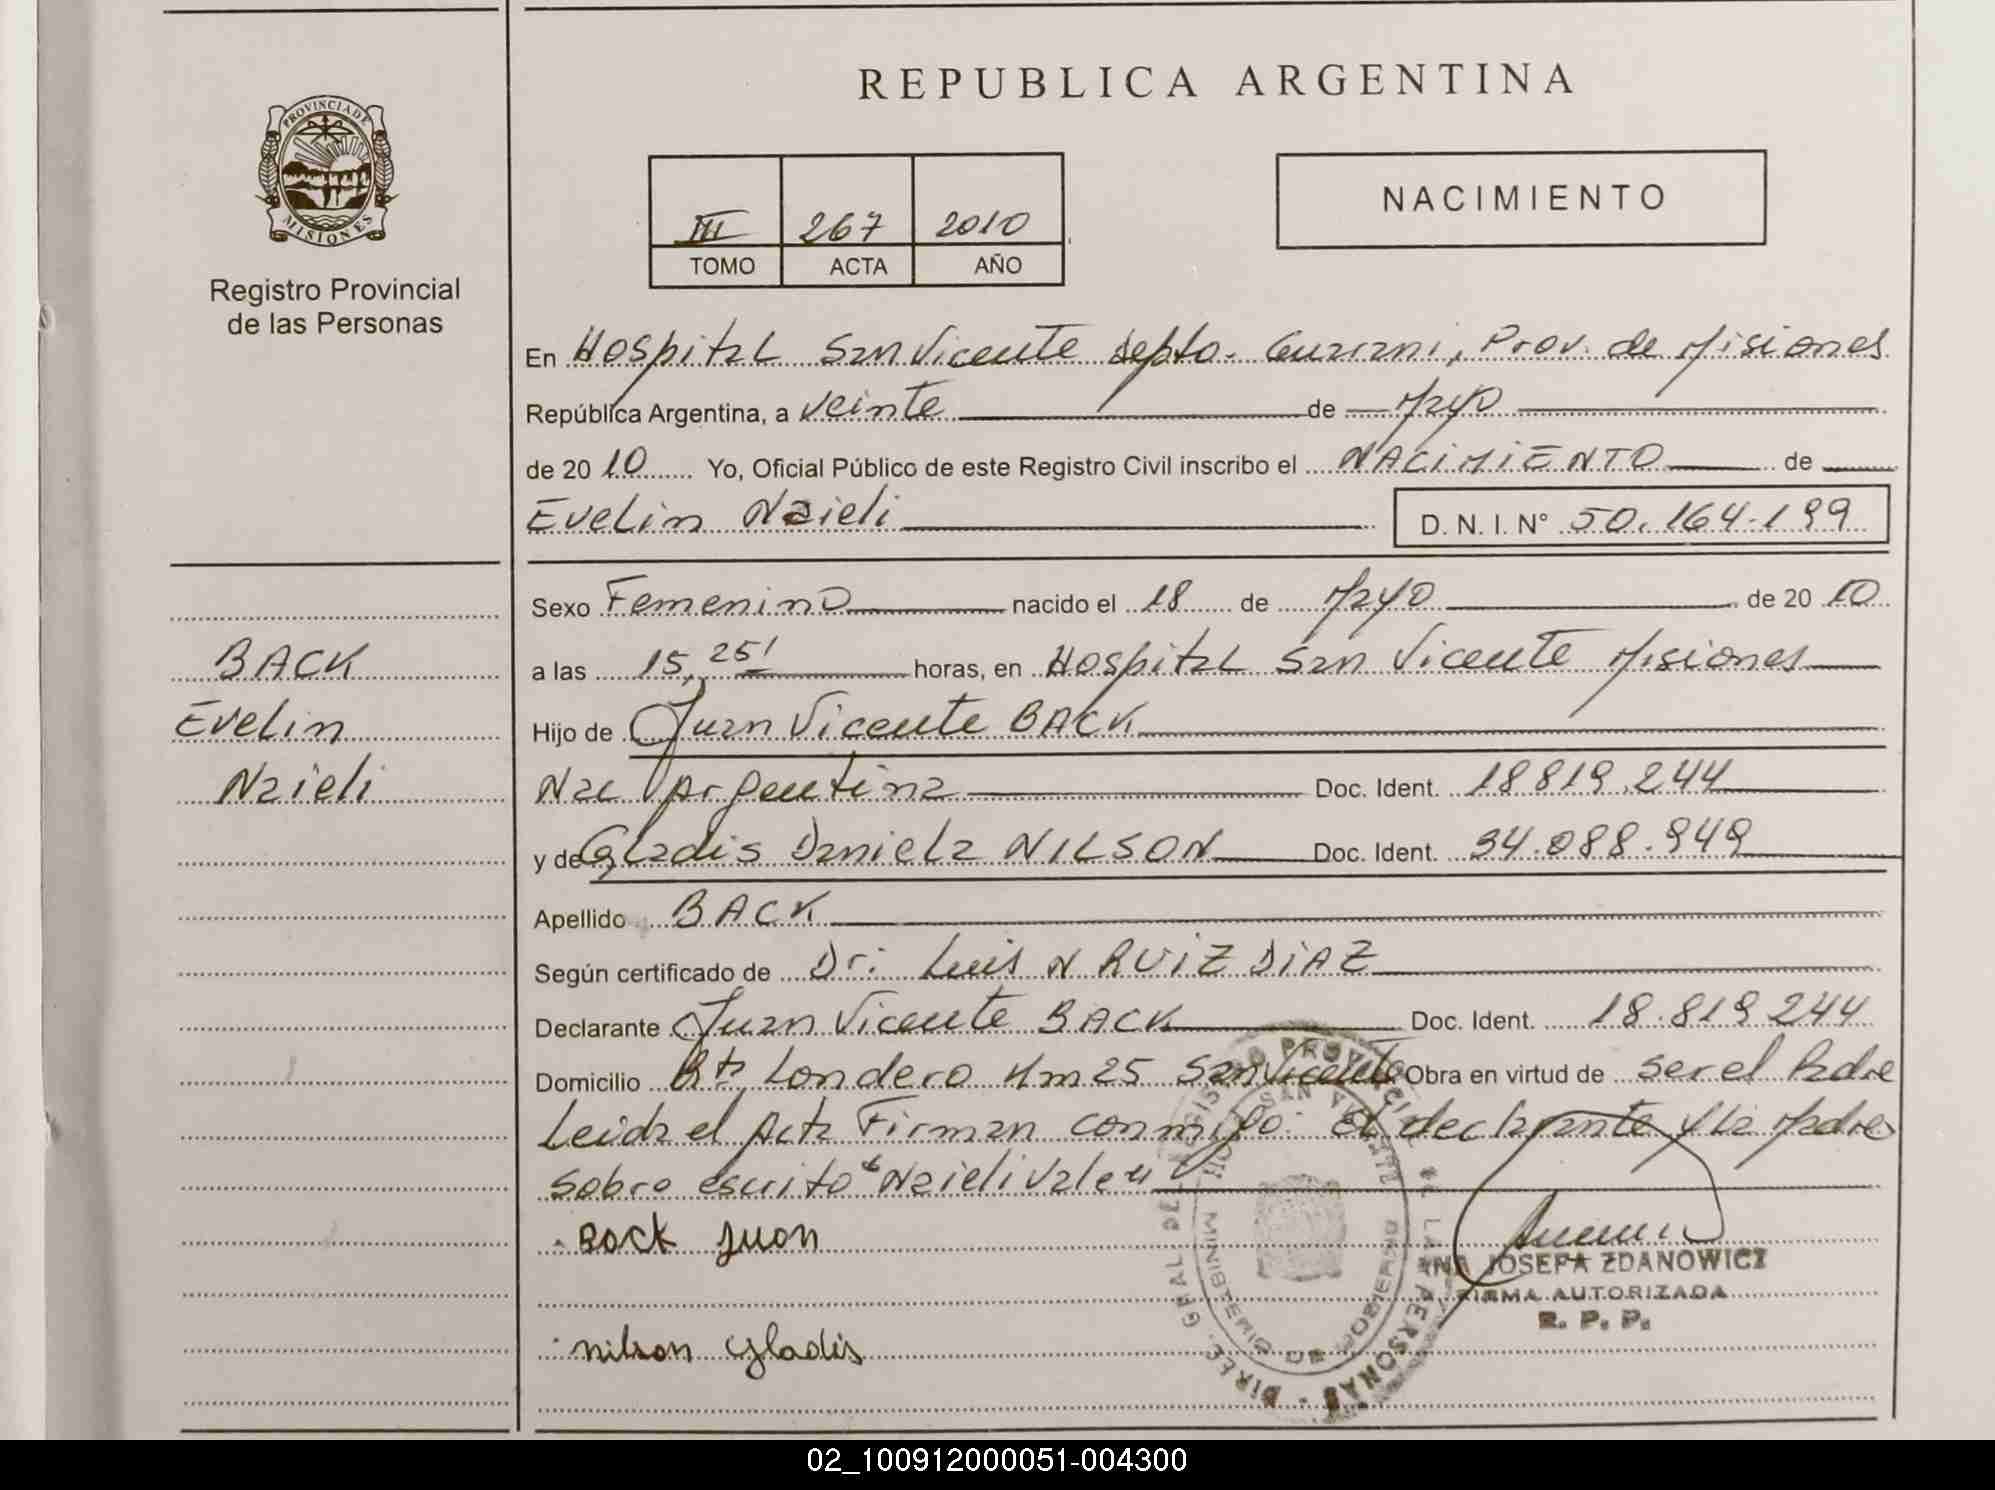 PROVINCIA DE
MISIONES
Registro Provincial
de las Personas
BACK
Evelin
Naieli
REPUBLICA ARGENTINA
III 267 2010
TOMO ACTA AÑO
NACIMIENTO
En Hospital San Vicente depto. Guarani, Prov. de Misiones
República Argentina, a veinte de Mayo
de 2010 Yo, Oficial Público de este Registro Civil inscribo el NACIMIENTO de
Evelin Naieli D. N. I. N° 50.164.199
Sexo Femenino nacido el 18 de Mayo de 2010
a las 15,25' horas, en Hospital San Vicente Misiones
Hijo de Juan Vicente BACK
Nac Argentina Doc. Ident. 18819.244
y de Gladis Daniela NILSON Doc. Ident. 34.088.949
Apellido BACK
Según certificado de Dr: Luis N RUIZ DIAZ
Declarante Juan Vicente BACK Doc. Ident. 18.819 244
Domicilio Rta Londero Km 25 San Vicente Obra en virtud de ser el Padre
Leida el Acta Firman conmigo. El declarante y la Madre
sobre escrito "Naieli Vale"
Back Juan
Nilson Gladis
JOSEFA ZDANOWICZ
FIRMA AUTORIZADA
R. P. P.
DIREC. GRAL DEL REGISTRO PROVINCIAL DE LAS PERSONAS
MINISTERIO DE GOBIERNO
02_100912000051-004300